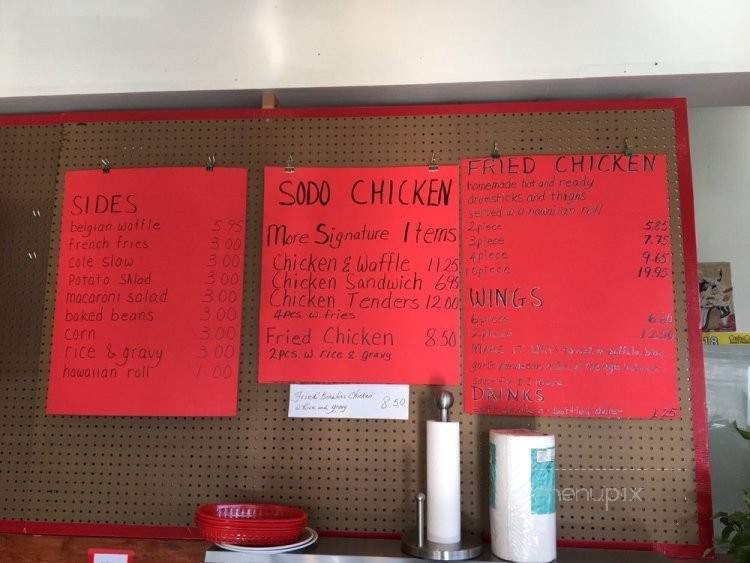 SIDES
belgian waffle 5.95
french fries 3.00
cole slaw 3.00
Potato Salad 3.00
macaroni salad 3.00
baked beans 3.00
corn 3.00
rice & gravy 3.00
hawaiian roll 1.00
SODO CHICKEN
More Signature Items
Chicken & Waffle 11.25
Chicken Sandwich 6.95
Chicken Tenders 12.00
4pcs. w. fries
Fried Chicken 8.50
2pcs w rice & gravy
Fried Boneless Chicken
w Rice and gravy 8.50
FRIED CHICKEN
homemade hot and ready
drumsticks and thighs
served w a hawaiian roll
2 piece 5.85
3 piece 7.75
4 piece 9.65
piece 19.95
WINGS
6 piece
piece 12.50
MAKE IT
garlic parmesan
DRINKS
1.25
menupix